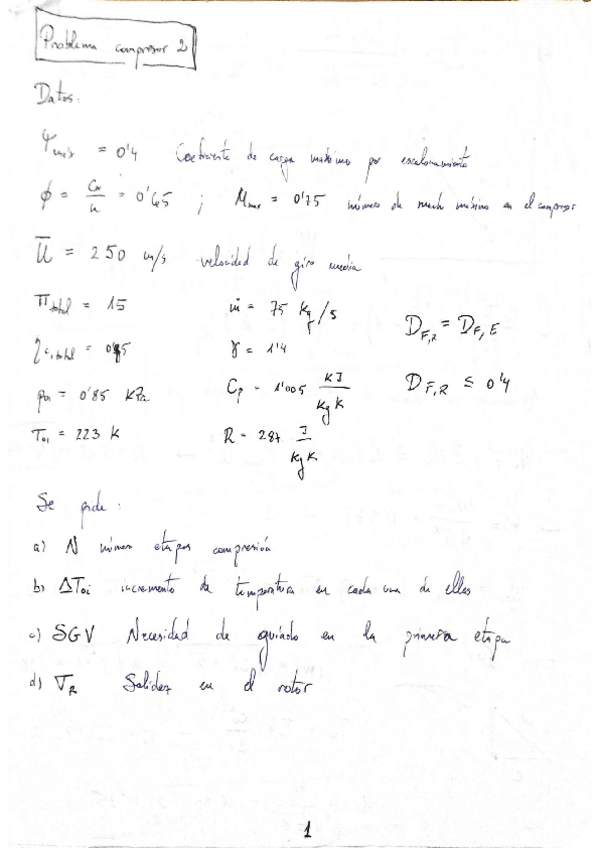 Problema compresor 2
Datos:
Ψmáx = 0'4 Coeficiente de carga máximo por escalonamiento
ϕ = Cx/u = 0'65 ; Mmax = 0'75 número de mach máximo en el compresor
U̅ = 250 m/s velocidad de giro media
πtotal = 15 ṁ = 75 kg/s DF,R = DF,E
ηc,total = γ = 1'4
p01 = 0'85 kPa Cp = 1'005 KJ/KgK DF,R ≤ 0'4
T01 = 223 K R = 287 J/KgK
Se pide:
a) N número etapas compresión
b) ΔT0i incremento de temperatura en cada una de ellas
c) SGV Necesidad de guiado en la primera etapa
d) σR Solidez en el rotor
1